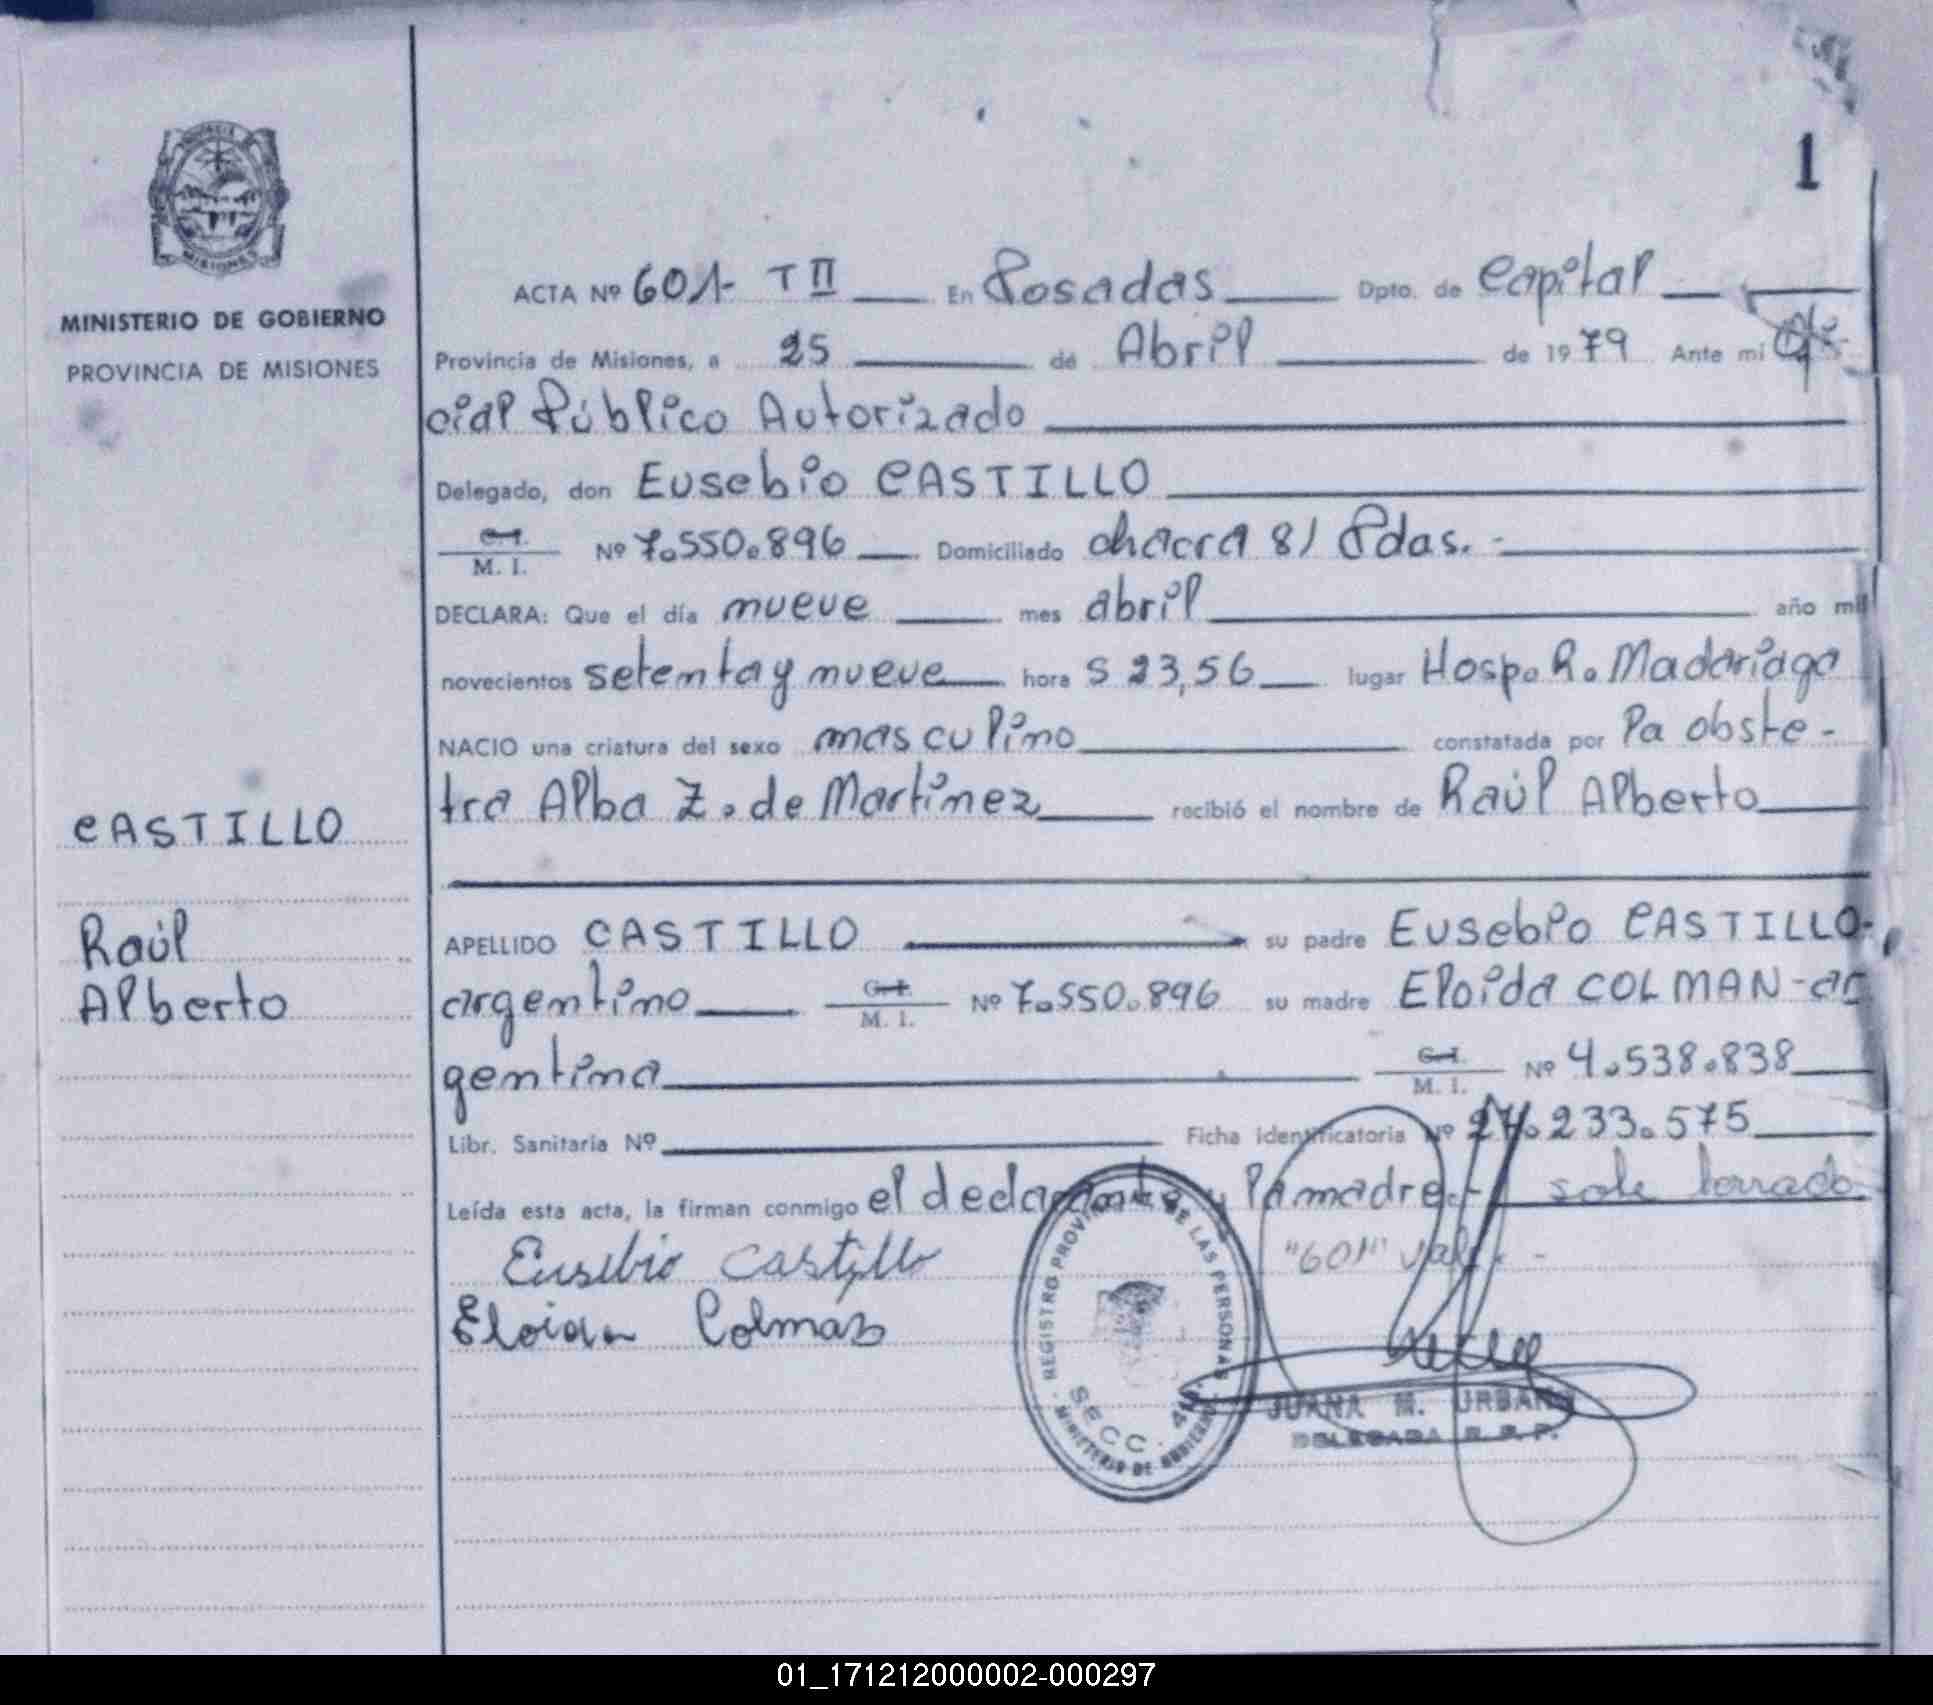 1
PROVINCIA DE
MISIONES
MINISTERIO DE GOBIERNO
PROVINCIA DE MISIONES
ACTA Nº 601- T II En Posadas Dpto. de Capital
Provincia de Misiones, a 25 de Abril de 1979 Ante mi Ofi-
cial Público Autorizado
Delegado, don Eusebio CASTILLO
C.I.
M. I. Nº 7.550.896 Domiciliado chacra 81 Pdas. -
DECLARA: Que el día nueve mes abril año mil
novecientos setenta y nueve hora s 23,56 lugar Hosp. R. Madariaga
NACIO una criatura del sexo masculino constatada por la obste-
tra Alba Z. de Martinez recibió el nombre de Raúl Alberto
CASTILLO
Raúl
Alberto
APELLIDO CASTILLO su padre Eusebio CASTILLO-
argentino C.I.
M. I. Nº 7.550.896 su madre Eloida COLMAN-ar
gentina C.I.
M. I. Nº 4.538.838
Libr. Sanitaria Nº Ficha identificatoria Nº 27.233.575
Leída esta acta, la firman conmigo el declarante y la madre.-
"601" vale. -
Eusebio Castillo
Eloida Colman
REGISTRO PROVINCIAL DE LAS PERSONAS
SECC. 4ta.
MINISTERIO DE GOBIERNO
JUANA M. URBAN
DELEGADA R. P. P.
01_171212000002-000297